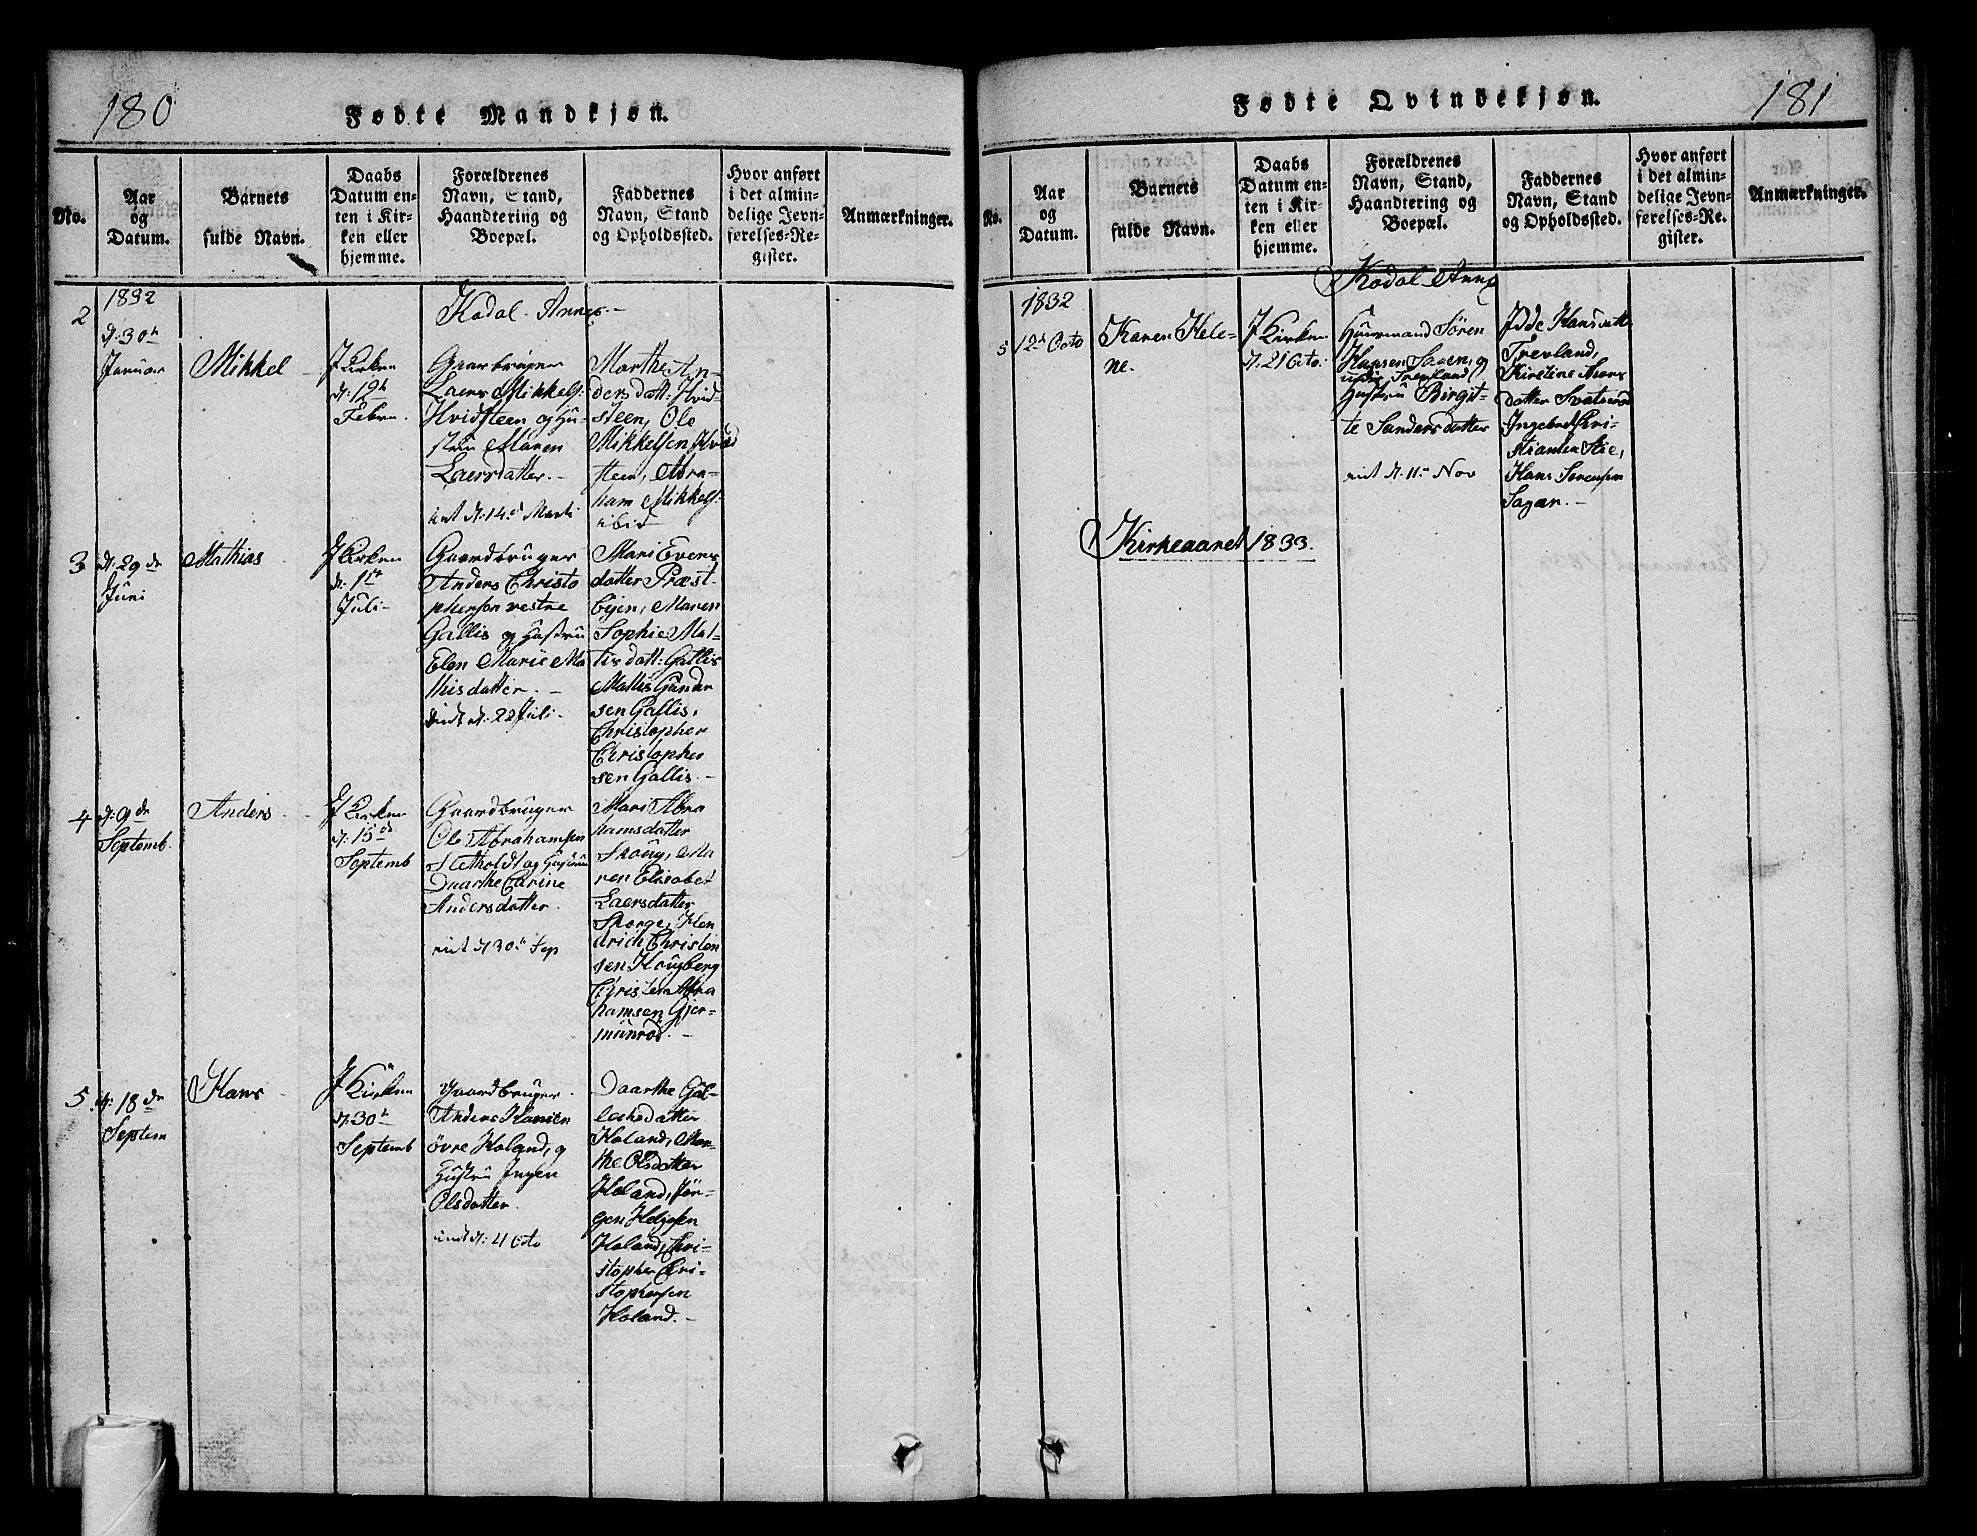 180
Fødte Mandkjøn.
No.
Aar
og
Datum.
Barnets
fulde Navn.
Daabs
Datum en-
ten i Kir-
ken eller
hjemme.
Forældrenes
Navn, Stand,
Haandtering og
Boepæl.
Faddernes
Navn, Stand
og Opholdssted.
Hvor anført
i det almin-
delige Jevn-
førelses-Re-
gister.
Anmærkninger.
Kodal Annex.-
2
1832
d: 30te
Januar
Mikkel
J Kirken
d: 12te
Febru.
Gaardbruger
Laers Mikkels:
Hvidsteen og Hu-
stru Maren
Laersdatter.-
d: 14de
Marthe An-
dersdatt: Hvid-
steen, Ole
Mikkelsen Hvid
steen, Abra-
ham Mikkels:
ibid
3
d: 29de
Juni
Mathias
J Kirken
d: 1ste
Juli-
Gaardbruger
Anders Christo
phersen vestre
Gallis og Hustru
Elen Marie Ma
thisdatter.-
d: 22 Juli-
Mari Evens
datter Præst-
byen, Maren
Sophie Mat-
tisdatt: Gallis
Mattis Gunder
sen Gallis,
Christopher
Christopher
sen Gallis.-
4
d: 9de
Septemb.
Anders
J Kirken
d: 15de
Septemb
Gaardbruger
Ole Abrahamsen
Sletholdt og Hustru
Daarthe Carine
Andersdatter.
d 30te Sep
Mari Abra
hamsdatter
Skoug, Ma
ren Elisabet
Laersdatter
Skorge, Hen
drich Christen
sen Hougberg
Christen Abra
hamsen Gjer-
munrød.-
5.
d: 18de
Septem
Hans
J Kirken
d: 30te
Septemb
Gaardbruger
Anders Hansen
øvre Holand, og
Hustru Inger
Olsdatter.
d: 4 Octo
Daarthe Gul-
leksdatter
Holand, Mar-
the Olsdatter
Holand, Jør-
gen Helgesen
Holand, Chri-
stopher Cri-
stophersen
Holand.-
181
Fødte Qvindekjøn.
No.
Aar
og
Datum.
Barnets
fulde Navn.
Daabs
Datum en-
ten i Kir-
ken eller
hjemme.
Forældrenes
Navn, Stand,
Haandtering og
Boepæl.
Faddernes
Navn, Stand
og Opholdssted.
Hvor anført
i det almin-
delige Jevn-
førelses-Re-
gister.
Anmærkninger.
Kodal Annex
5
1832
12te Octo
Karen Hele-
ne.
J Kirken
d: 21 Octo:
Huusmand Sören
Hansen Sagen, og
Trevland
Hustru Birgit-
te Sandersdatter
d: 11te Nov
Idde Hansdatt:
Trevland,
Kirstine Ams
datter Svatserød
Ingebret Kri-
stiansen Stie,
Hans Sørensen
Sagen.-
Kirkeaaret 1833.